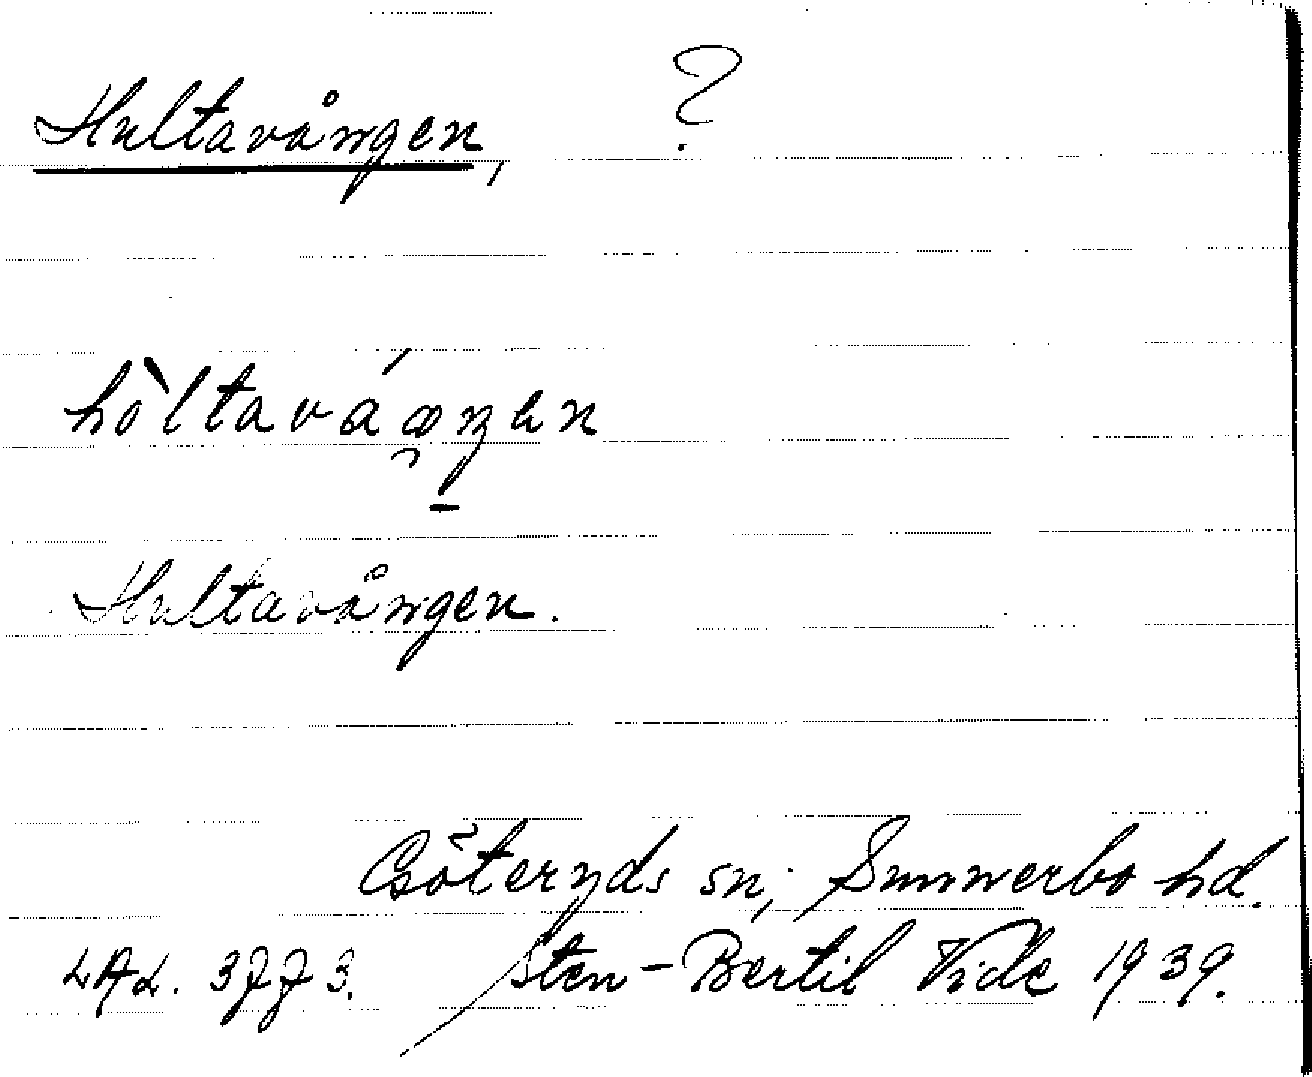 Hultavången, ?
Hultavången.
Göteryds sn; Sunnerbo hd.
LAL. 3773. Sten-Bertil Vide 1939.